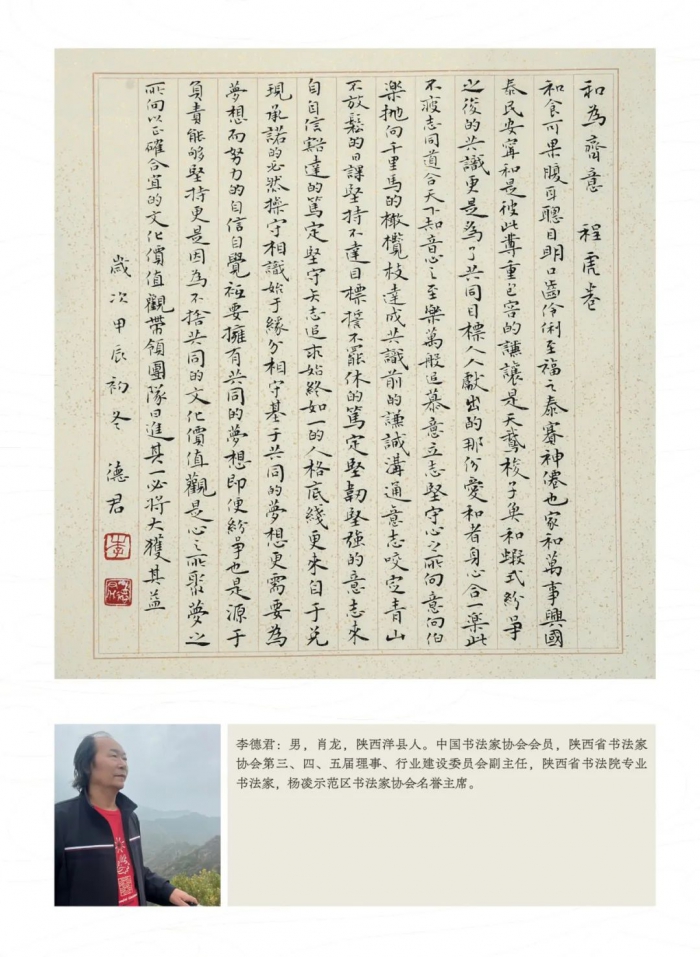 和為齋意　程虎卷
和食可果腹耳聰目明口齒伶俐至福之泰蹇神僊也家和萬事興國
泰民安寧和是彼此尊重包容的謙讓是天鵝梭子魚和蝦式紛爭
之後的共識更是為了共同目標人人獻出的那份愛和者身心合一樂此
不疲志同道合天下知音心之至樂萬般追慕意立志堅守心之所向意向伯
樂拋向千里馬的橄欖枝達成共識前的謙誠溝通意志咬定青山
不放鬆的日課堅持不達目標誓不罷休的篤定堅韌堅強的意志來
自自信豁達的篤定堅守矢志追求始終如一的人格底綫更來自于兑
現承諾的必然操守相識始于緣分相守基于共同的夢想更需要為
夢想而努力的自信自覺秪要擁有共同的夢想即便紛爭也是源于
負責能够堅持更是因為不捨共同的文化價值觀是心之所聚夢之
所向以正確合宜的文化價值觀帶領團隊日進其一必將大獲其益
歲次甲辰初冬　德君
李德君：男，肖龙，陕西洋县人。中国书法家协会会员，陕西省书法家
协会第三、四、五届理事、行业建设委员会副主任，陕西省书法院专业
书法家，杨凌示范区书法家协会名誉主席。